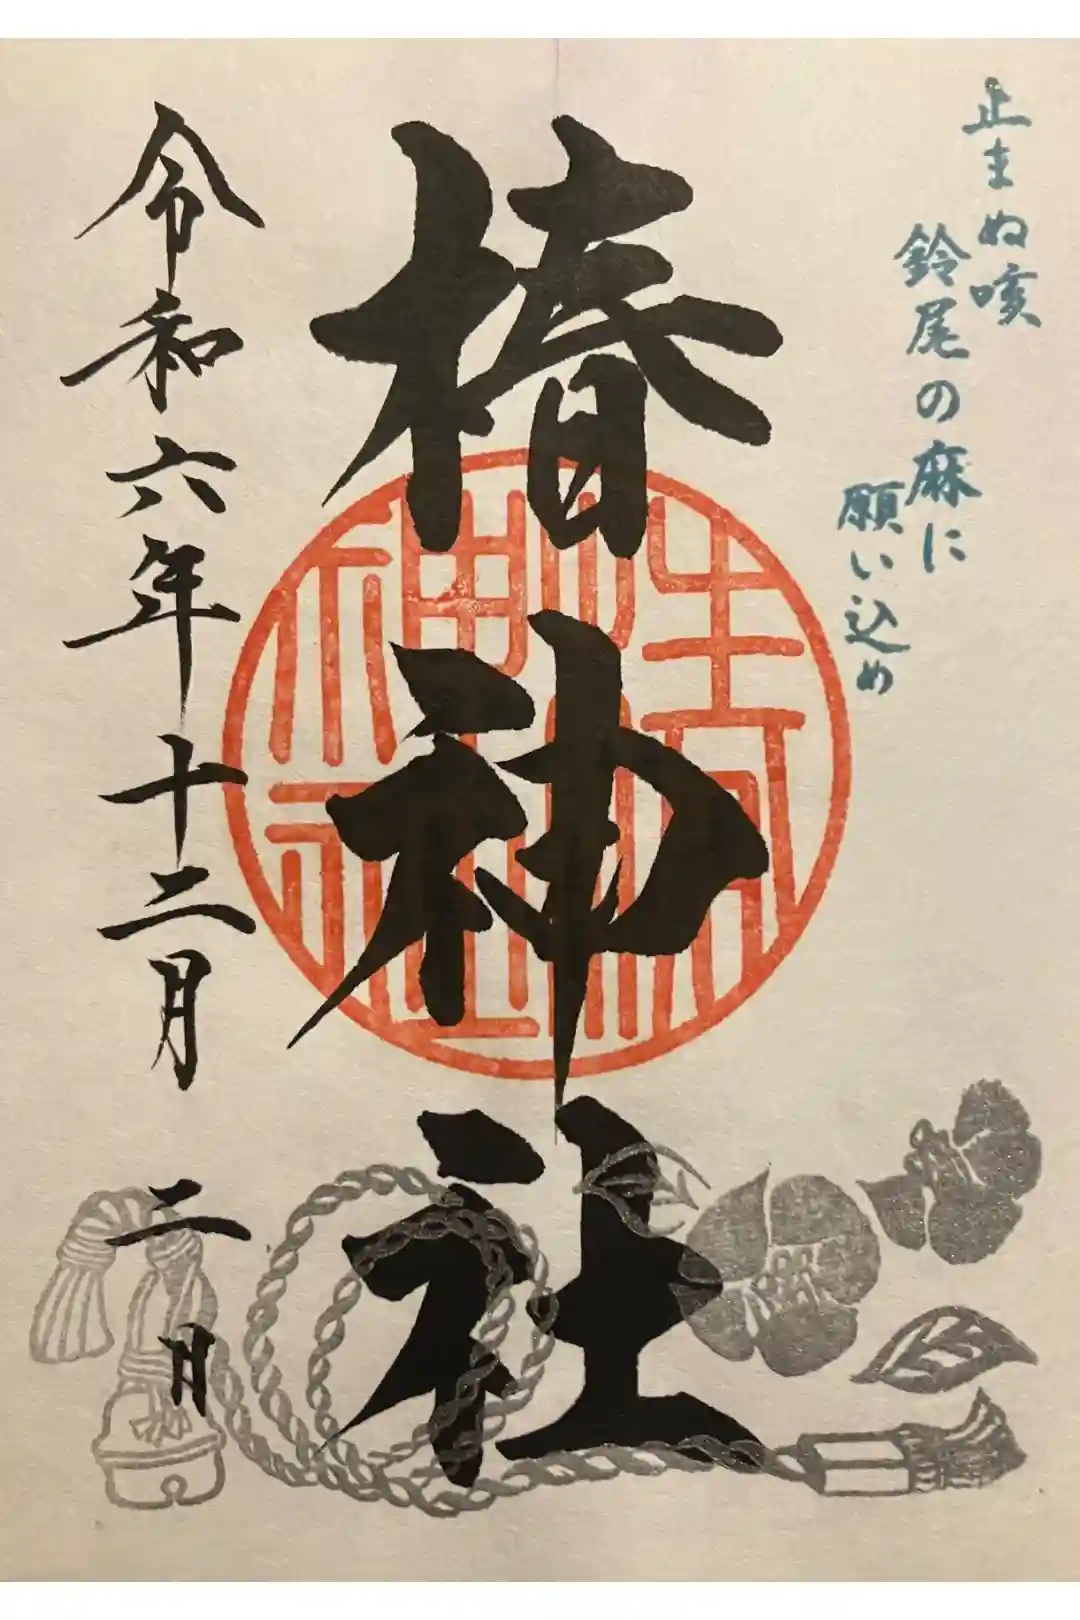 止まぬ咳
鈴尾の麻に
願い込め
椿神社
令和六年十二月二日